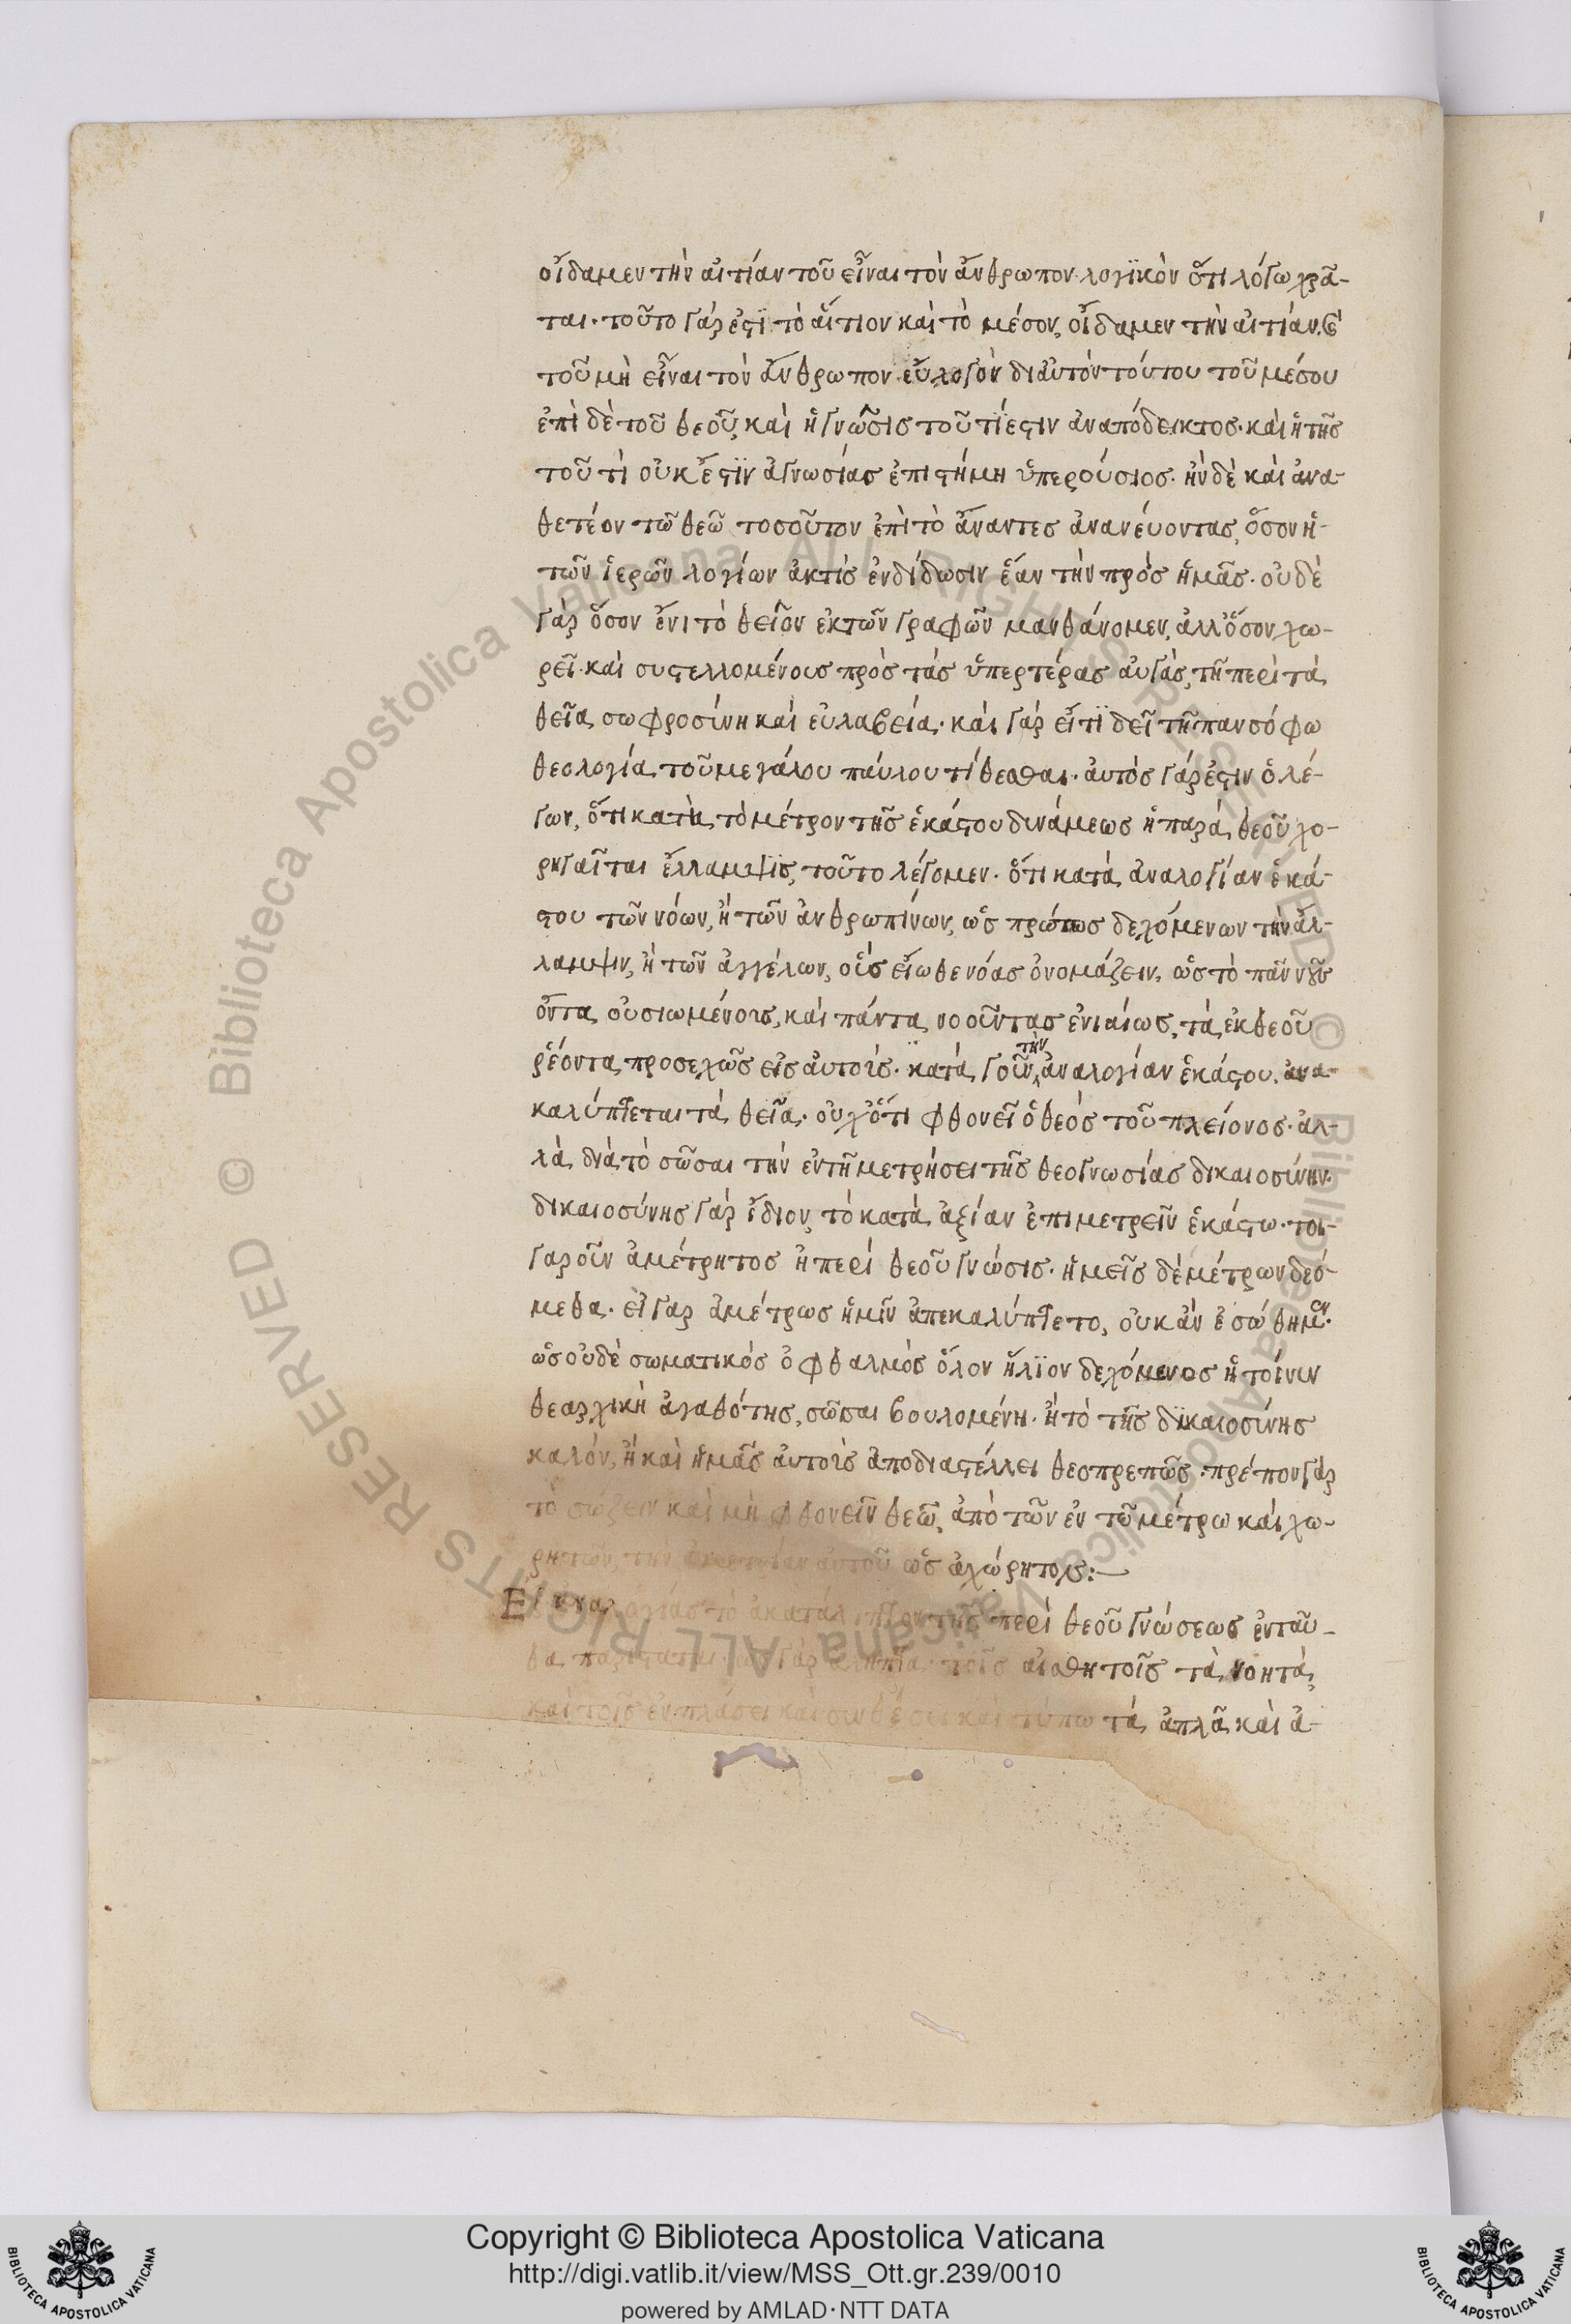 οἴδαμεν τὴν αἰτίαν τοῦ εἶναι τὸν ἄνθρωπον λογϊκὸν ὅτι λόγω χρᾶ-
ται· τοῦτο γάρ ἐστϊ τὸ αἴτιον καὶ τὸ μέσον, οἴδαμεν τὴν αἰτίαν καὶ
τοῦ μὴ εἶναι τὸν ἄνθρωπον διαὐτὸν τούτου τοῦ μέσου
ἐπὶ δὲ τοῦ θεοῦ, καὶ ἡ γνῶσις τοῦ τί ἐστιν ἀναπόδεικτος· καὶ ἡ τῆς
τοῦ τὶ οὐκ ἔστϊν ἀγνωσίας ἐπιστήμη ὑπερούσιος· ἣν δὲ καὶ ἀνα-
θετέον τῶ θεῶ τοσοῦτον ἐπὶ τὸ ἄναντες ἀνανέυοντας, ὅσον ἡ-
τῶν ἱερῶν λογίων ἀκτὶς ἐνδίδωσιν ἑᾶν τὴν πρὸς ἡμᾶς· οὐδὲ
γὰρ ὅσον ἔνι τὸ θεῖον ἐκ τῶν γραφῶν μανθάνομεν, ἀλλ' ὅσον χω-
ρεῖ· καὶ συστελλομένους πρὸς τὰς ὑπερτέρας αὐγὰς, τῆ περὶ τὰ
θεῖα σωφροσύνη καὶ εὐλαβεία· καὶ γὰρ εἴ τϊ δεῖ τῆ πανσόφω
θεολογία τοῦ μεγάλου πάυλου τίθεσθαι· ἀυτὸς γάρ ἐστιν ὁ λέ-
γων, ὅτι κατὰ τὸ μέτρον τῆς ἑκάστου δυνάμεως ἡ παρὰ θεοῦ χο-
ρηγαῖται ἔλλαμψϊς, τοῦτο λέγομεν· ὅτι κατὰ ἀναλογίαν ἑκά-
στου τῶν νόων, ἢ τῶν ἀνθρωπίνων, ὡς πρώτως δεχόμενων τὴν ἄλ-
λαμψιν, ἢ τῶν ἀγγέλων, οὓς εἴωθε νόας ὀνομάζειν, ὡς τὸ πᾶν νοῦς
ὄντα οὐσιωμένους, καὶ πάντα νοοῦντας ἐνιαίως, τὰ ἐκ θεοῦ
ῥέοντα προσεχῶς εἰς ἀυτοὺς· κατὰ γοῦν τὴν ἀναλογίαν ἑκάστου ἀνα-
καλύπτεται τὰ θεῖα· οὐχ ὅτι φθονεῖ ὁ θεὸς τοῦ πλείονος· ἀλ-
λὰ διὰ τὸ σῶσαι τὴν ἐν τῆ μετρήσει τῆς θεογνωσίας δικαιοσύνην·
δικαιοσύνης γὰρ ἴδιον, τὸ κατὰ ἀξίαν ἐπιμετρεῖν ἑκάστω· τοι-
γαροῦν ἀμέτρητος ἡ περὶ θεοῦ γνώσις· ἡμεῖς δὲ μέτρων δεό-
μεθα· εἰ γὰρ ἀμέτρως ἡμῖν ἀπεκαλύπτετο, οὐκ ἂν ἐσώθημεν·
ὡς οὐδὲ σωματικὸς ὀφθαλμὸς ὅλον ἥλϊον δεχόμενος ἡ τοίνυν
θεαρχικὴ ἀγαθότης, σῶσαι βουλομένη· ἢ τὸ τῆς δϊκαιοσύνης
καλόν, ἢ καὶ ἡμᾶς ἀυτοὺς ἀποδιαστέλλει θεοπρεπῶς· πρέπον γὰρ
τὸ σώζειν καὶ μὴ φθονεῖν θεῶ, ἀπὸ τῶν ἐν τῶ μέτρω καὶ χω-
ρητῶν, τὴν ἀμετρίαν ἀυτοῦ ὡς ἀχώρητοις:—
ἀκατάληπτον τῆς περὶ θεοῦ γνώσεως ἐνταῦ-
θα παρίσταται· ὡς γὰρ ἄληπτα τοῖς αἰσθητοῖς τὰ νοητὰ,
καὶ τοῖς ἐν πλάσει καὶ συνθέσει καὶ τύπω τὰ ἁπλᾶ καὶ ἀ-
Copyright © Biblioteca Apostolica Vaticana
http://digi.vatlib.it/view/MSS_Ott.gr.239/0010
powered by AMLAD·NTT DATA